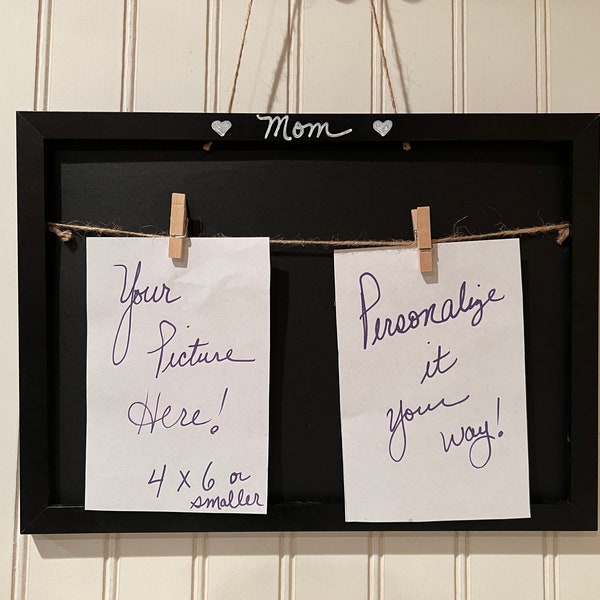 Mom
Your
Picture
Here!
4 x 6 or
smaller
Personalize
it
Your
way!